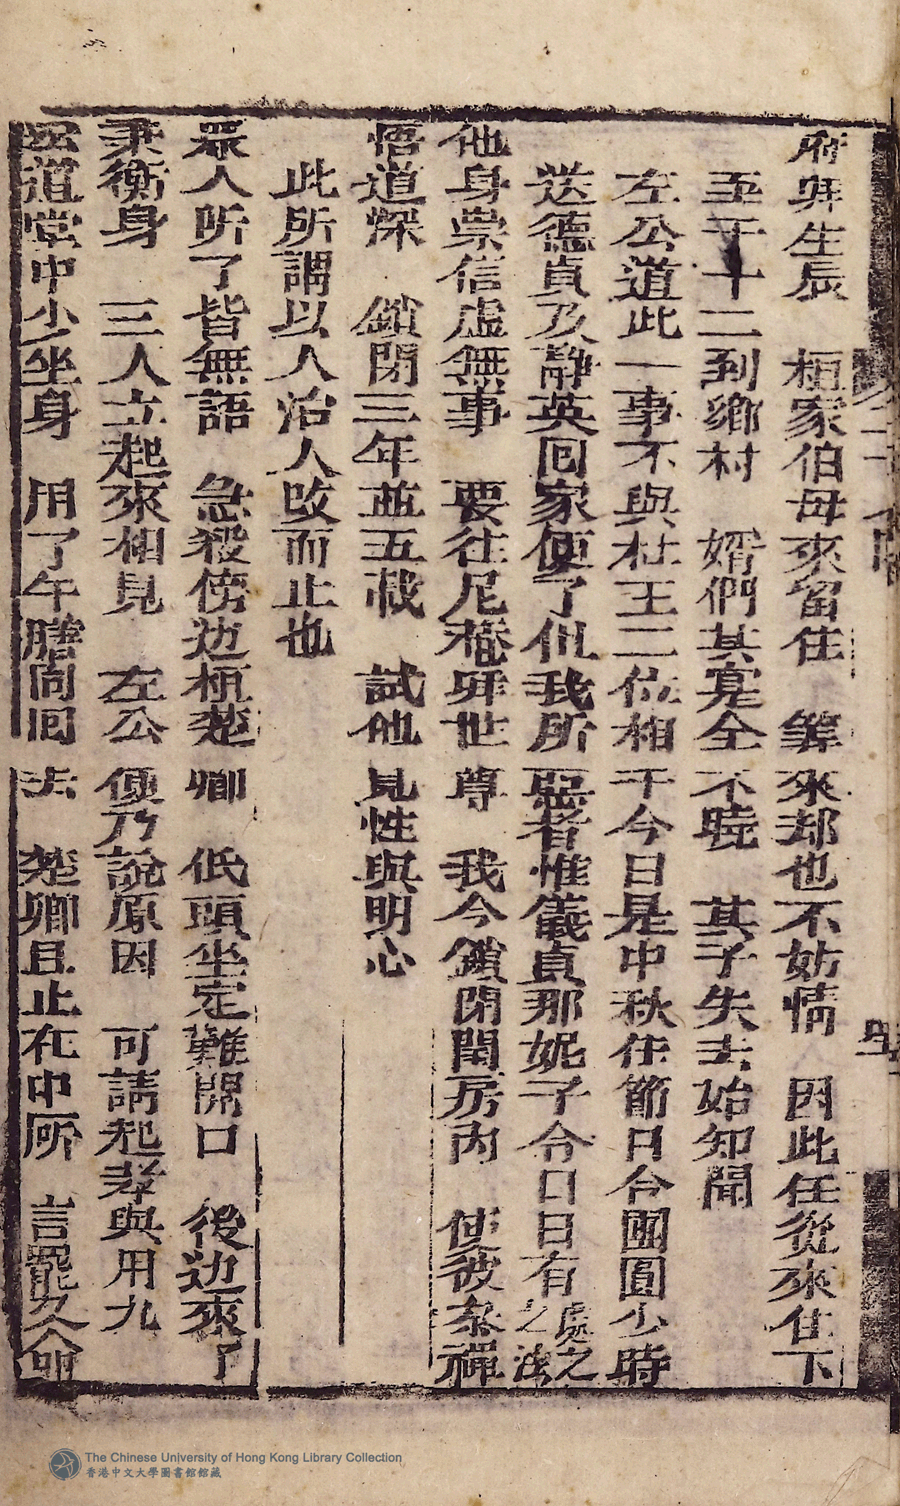 府拜生辰　桓家伯母來留住　等來却也不妨情　因此任從來住下
至于十二到鄉村　婿們其寔全不曉　其子失去始知聞
左公道此一事不與杜王二位相干今日是中秋佳節日合團圓少時
送德貞及靜英回家便了但我所惡者惟儀貞那妮子今日有處之之法
他身崇信虛無事　要往尼菴拜世尊　我今鎖閉閨房內　使彼叅禪
悟道深　鎖閉三年並五載　試他見性與明心
此所謂以人治人改而止也
眾人听了皆無語　急殺傍边桓楚卿　低頭坐定難開口　後边來了
秉衡身　三人立起來相見　左公便乃說原因　可請起孝與用九
道堂中少坐身　用了午膳同回去　楚卿且止在中所　言罷久
The Chinese University of Hong Kong Library Collection
香港中文大學圖書館館藏